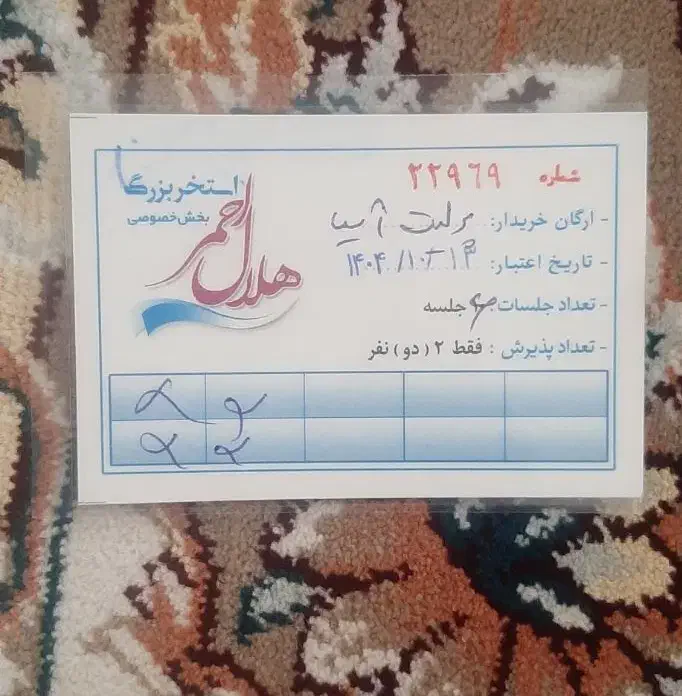 استخر بزرگ
بخش خصوصی
هلال احمر
شماره ۲۲۹۶۹
- ارگان خریدار: آسیا
- تاریخ اعتبار: ۱۴۰۴/۱۰
- تعداد جلسات: جلسه
- تعداد پذیرش : فقط ۲ (دو) نفر